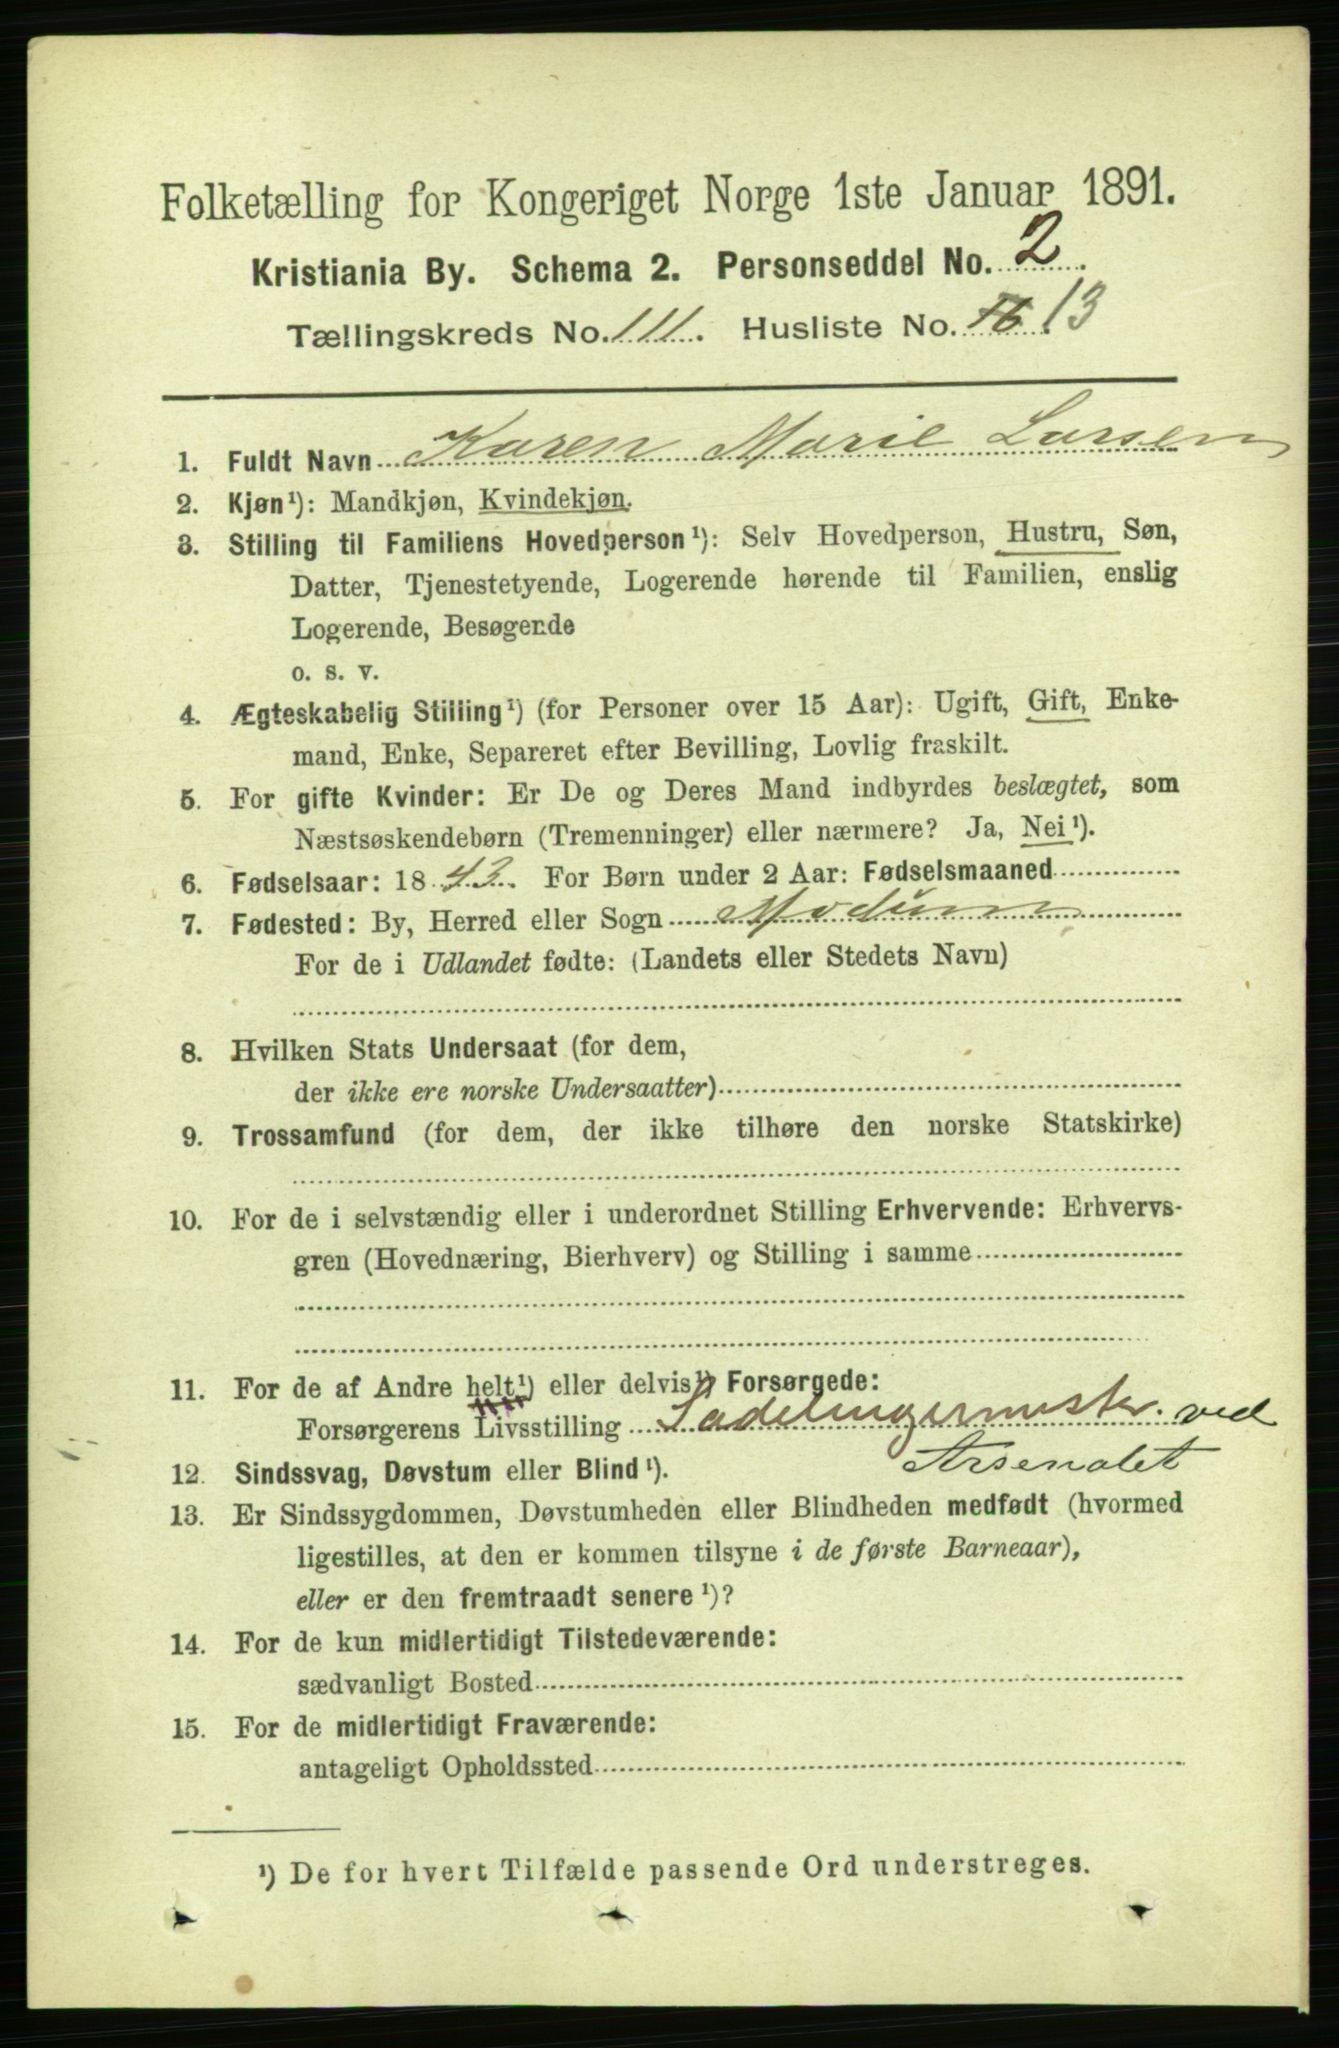 Folketælling for Kongeriget Norge 1ste Januar 1891.
Kristiania By. Schema 2. Personseddel No. 2.
Tællingskreds No. 111. Husliste No. 13
1. Fuldt Navn Karen Marie Larsen
2. Kjøn¹): Mandkjøn, Kvindekjøn.
3. Stilling til Familiens Hovedperson¹): Selv Hovedperson, Hustru, Søn,
Datter, Tjenestetyende, Logerende hørende til Familien, enslig
Logerende, Besøgende
o. s. v.
4. Ægteskabelig Stilling¹) (for Personer over 15 Aar): Ugift, Gift, Enke-
mand, Enke, Separeret efter Bevilling, Lovlig fraskilt.
5. For gifte Kvinder: Er De og Deres Mand indbyrdes beslægtet, som
Næstsøskendebørn (Tremenninger) eller nærmere? Ja, Nei¹).
6. Fødselsaar: 1843. For Børn under 2 Aar: Fødselsmaaned
7. Fødested: By, Herred eller Sogn Modum
For de i Udlandet fødte: (Landets eller Stedets Navn)
8. Hvilken Stats Undersaat (for dem,
der ikke ere norske Undersaatter)
9. Trossamfund (for dem, der ikke tilhøre den norske Statskirke)
10. For de i selvstændig eller i underordnet Stilling Erhvervende: Erhvervs-
gren (Hovednæring, Bierhverv) og Stilling i samme
11. For de af Andre helt¹) eller delvis¹) Forsørgede:
Forsørgerens Livsstilling ved
Arsenalet
12. Sindssvag, Døvstum eller Blind¹).
13. Er Sindssygdommen, Døvstumheden eller Blindheden medfødt (hvormed
ligestilles, at den er kommen tilsyne i de første Barneaar),
eller er den fremtraadt senere¹)?
14. For de kun midlertidigt Tilstedeværende:
sædvanligt Bosted
15. For de midlertidigt Fraværende:
antageligt Opholdssted
¹) De for hvert Tilfælde passende Ord understreges.